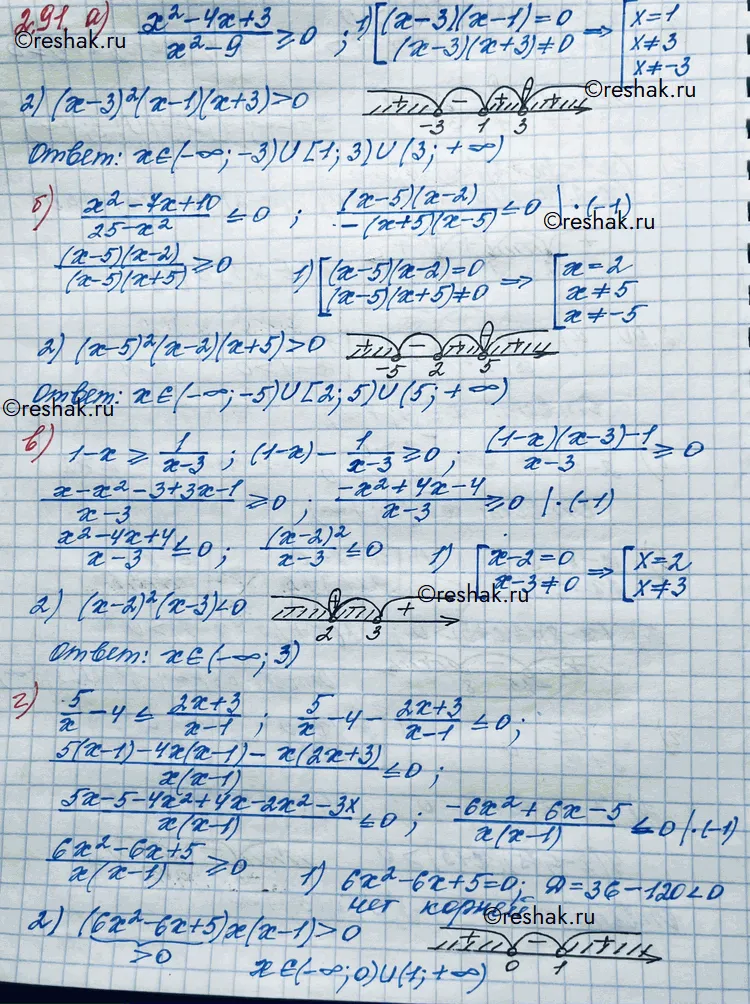 2.91. а) (x²-4x+3)/(x²-9) ≥ 0 ; 1) [(x-3)(x-1)=0 ; (x-3)(x+3)≠0 ⇒ [x=1 ; x≠3 ; x≠-3
©reshak.ru
2) (x-3)²(x-1)(x+3)>0 + - + + -3 1 3
©reshak.ru
Ответ: x∈(-∞; -3)∪[1; 3)∪(3; +∞)
б) (x²-7x+10)/(25-x²) ≤ 0 ; (x-5)(x-2)/(-(x+5)(x-5)) ≤ 0 |·(-1)
©reshak.ru
(x-5)(x-2)/((x-5)(x+5)) ≥ 0 1) [(x-5)(x-2)=0 ; (x-5)(x+5)≠0 ⇒ [x=2 ; x≠5 ; x≠-5
2) (x-5)²(x-2)(x+5)>0 - -5 2 5
Ответ: x∈(-∞; -5)∪[2; 5)∪(5; +∞)
©reshak.ru
в) 1-x ≥ 1/(x-3) ; (1-x) - 1/(x-3) ≥ 0 ; ((1-x)(x-3)-1)/(x-3) ≥ 0
(x-x²-3+3x-1)/(x-3) ≥ 0 ; (-x²+4x-4)/(x-3) ≥ 0 |·(-1)
(x²-4x+4)/(x-3) ≤ 0 ; (x-2)²/(x-3) ≤ 0 1) [x-2=0 ; x-3≠0 ⇒ [x=2 ; x≠3
©reshak.ru
2) (x-2)²(x-3)<0 + 2 3
Ответ: x∈(-∞; 3)
г) 5/x - 4 ≤ (2x+3)/(x-1) ; 5/x - 4 - (2x+3)/(x-1) ≤ 0 ;
(5(x-1)-4x(x-1)-x(2x+3))/(x(x-1)) ≤ 0 ;
(5x-5-4x²+4x-2x²-3x)/(x(x-1)) ≤ 0 ; (-6x²+6x-5)/(x(x-1)) ≤ 0 |·(-1)
(6x²-6x+5)/(x(x-1)) ≥ 0 1) 6x²-6x+5=0; D=36-120<0
нет корней
©reshak.ru
2) (6x²-6x+5)x(x-1)>0 + - + 0 1
>0
x∈(-∞; 0)∪(1; +∞)